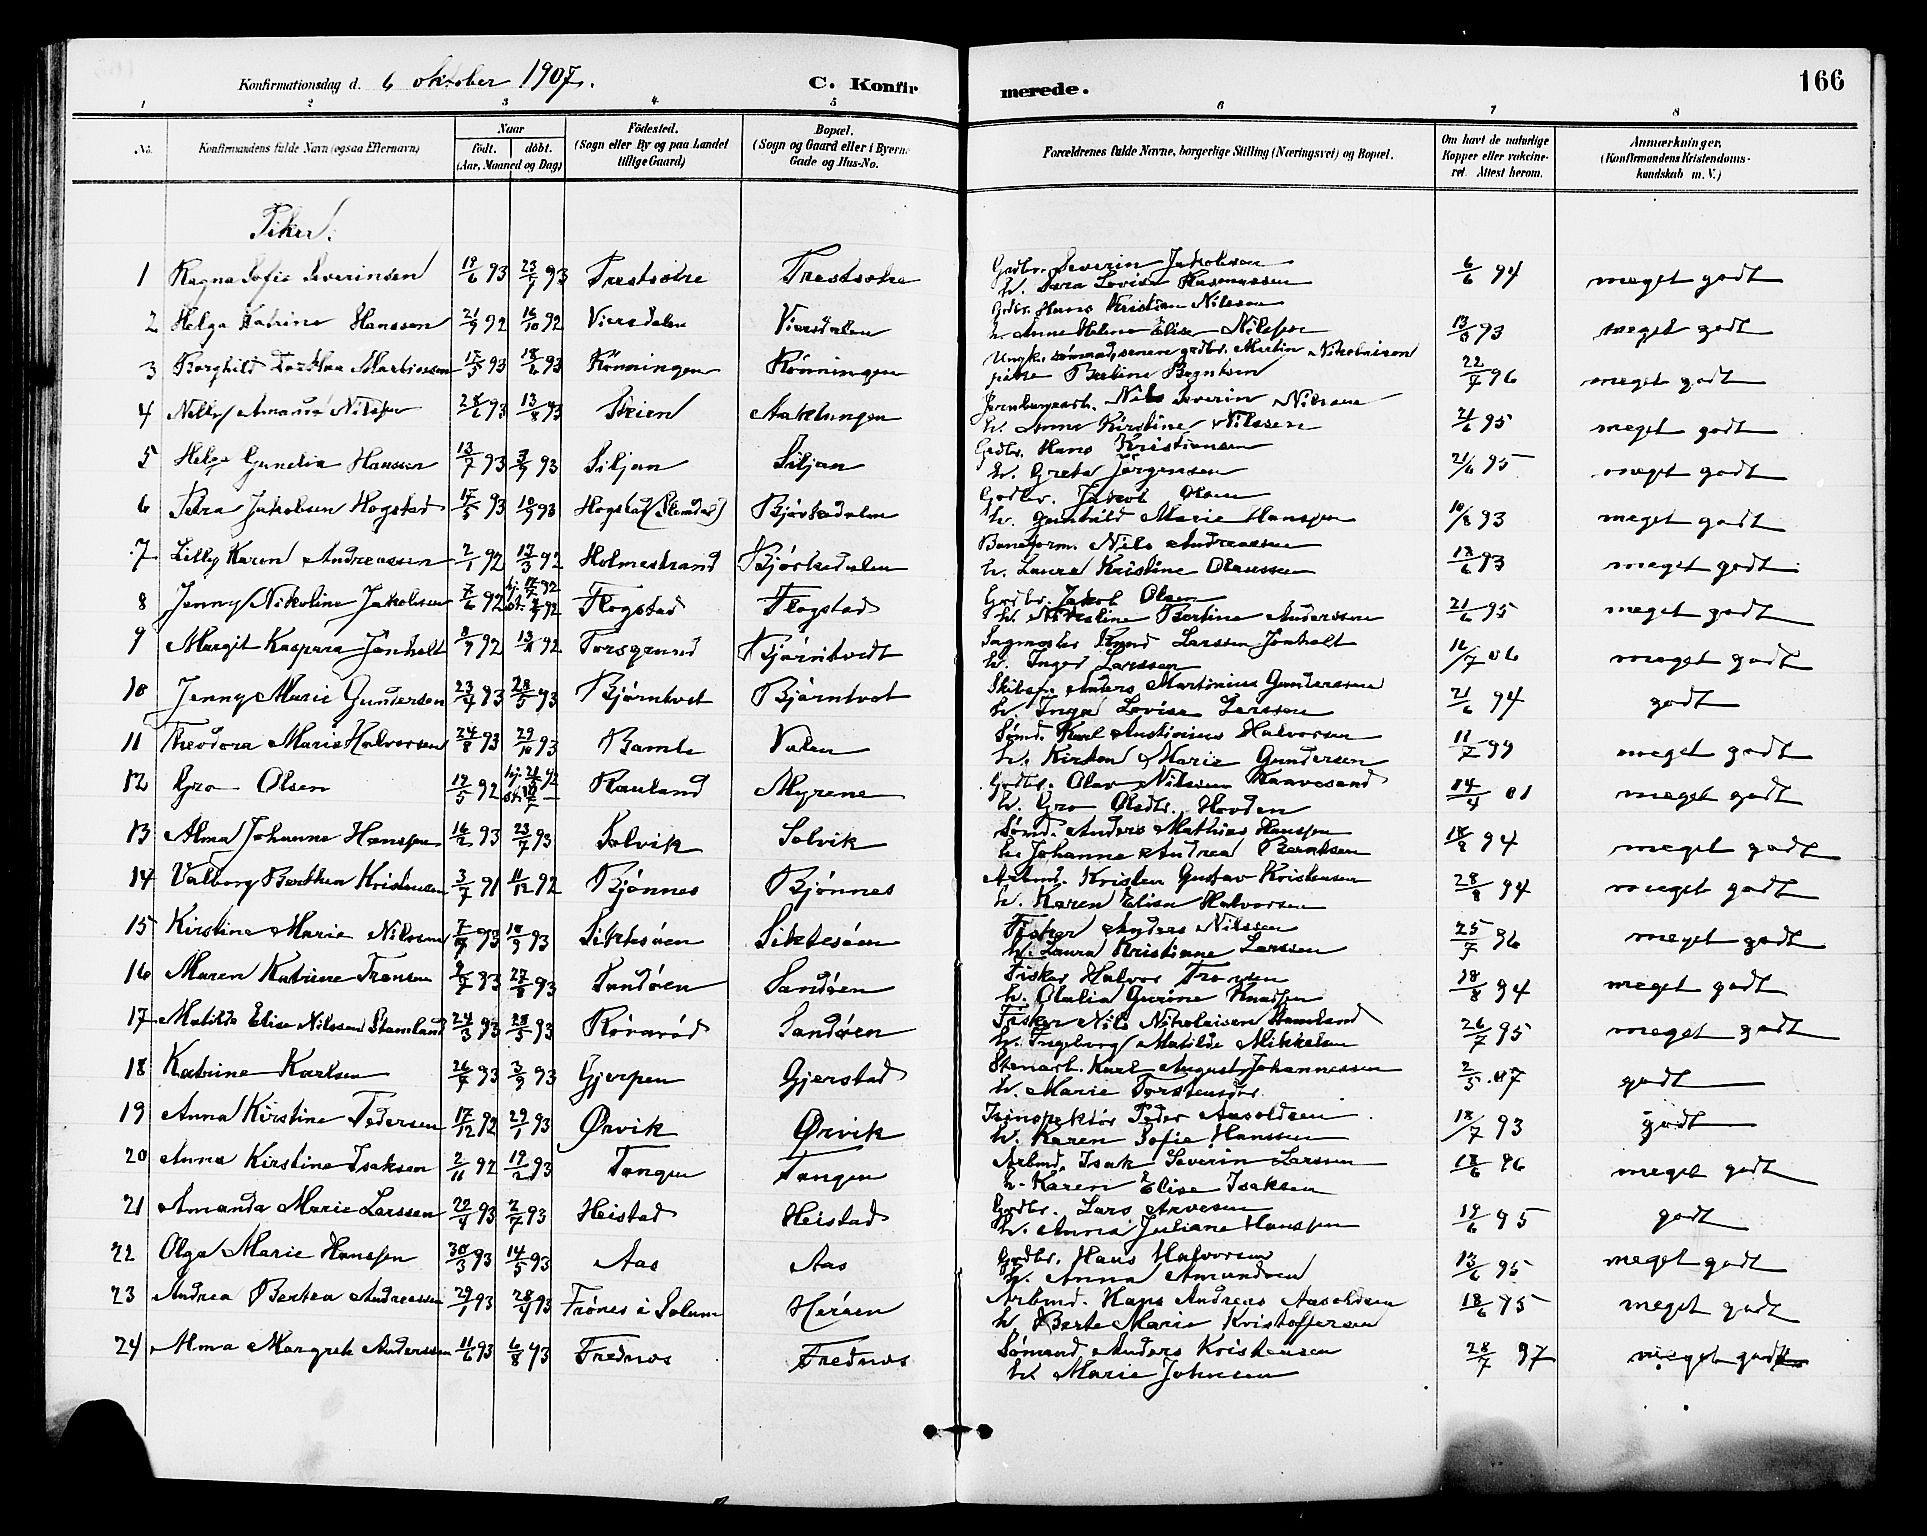 Konfirmationsdag d. 6 oktober 1907. C. Konfir
merede. 166
1 2 3 4 5 6 7 8
No. Konfirmandens fulde Navn (ogsaa Efternavn) Naar födt. döbt. (Aar, Maaned og Dag) Födested. (Sogn eller By og paa Landet tillige Gaard) Bopæl. (Sogn og Gaard eller i Byern Gade og Hus-No. Forældrenes fulde Navne, borgerlige Stilling (Næringsvei) og Bopæl. Om havt de naturlige Kopper eller vakcineret. Attest herom. Anmærkninger, (Konfirmandens Kristendomskundskab m. V.)
Piker.
1 Ragna Sofie Severinsen 19/6 93 23/7 93 Grdbr. Severin Jakobsen h. Lovise Rasmussen 6/6 94 meget godt
2 Helga Katrine Hanssen 21/9 92 16/10 92 Viersdalen Viersdalen Grdbr. Hans Kristian Nilssen h. Anne Helene Elise Nilssen 13/3 93 meget godt
3 Borghild 17/3 93 18/6 93 Rönningen Rönningen Ungk. sömand, senere grdbr. Martin Nikolaisen pike Berntsen 22/7 96 meget godt
4 Nelly Amanda Nilssen 28/6 93 13/8 93 Skien Jernbanearb. Nils Severin Nilssen h. Anne Kirstine Nilssen 21/6 95 meget godt
5 Helga Gunelia Hanssen 13/7 93 3/9 93 Siljan Siljan Grdbr. Hans Kristiansen h. Greta Jörgensen 21/6 95 meget godt
6 Petra Jakobsen Hogstad 17/5 93 93 Hogstad (Slemdal) Björkedalen Grdbr. Jakob Olsen h. Gunhild Marie Hanssen 10/8 93 meget godt
7 Lilly Karen Andreassen 2/1 92 13/3 92 Holmestrand Björkedalen Baneform. Nils Andreassen h. Laura Kristine Olaussen 18/6 93 meget godt
8 Jenny Nikoline Jakobsen 7/6 92 hj. 92 st. 92 Flogstad Flogstad Grdbr. Jakob Olsen h. Bertine Anderssen 21/6 95 meget godt
9 Margit Kaspara Jönholt 8/9 92 13/11 92 Porsgrund Björntvedt Sagmester Knud Larssen Jönholt h. Inger Larssen 16/7 06 meget godt
10 Jenny Marie Gundersen 23/4 93 28/5 93 Björntvet Björntvet Anders Martinius Gunderssen h. Inga Lovise Larssen 21/6 94 godt
11 Theodora Marie Halvorsen 24/8 93 29/10 93 Bamle Valen Sömd. Karl Halvorsen h. Kirsten Marie Gundersen 11/7 99 meget godt
12 Gro Olsen 12/5 92 Rauland Myrene Grdbr. Olav Nilssen h. Gro Olsdtr. Hovden 14/4 01 meget godt
13 Alma Johanne Hanssen 16/2 93 23/7 93 Solvik Solvik Sömd. Anders Mathias Hanssen h. Johanne Andrea Berntsen 18/8 94 meget godt
14 Valborg Berthea Kristensen 3/7 91 11/12 92 Björnnes Björnnes Arbmd. Kristen Gustav Kristensen h. Karen Elisa Halvorsen 28/8 94 meget godt
15 Kirstine Marie Nilssen 93 10/9 93 Siktesöen Siktesöen Fisker Anders Nilssen h. Laura Kristiane Larssen 25/7 96 meget godt
16 Maren Katrine 93 27/8 93 Sandöen Sandöen Fisker Halvor h. Olalia Gurine Knudsen 18/8 94 meget godt
17 Matilde Elise Nilssen Stamland 24/3 93 28/5 93 Röraröd Sandöen Fisker Nils Nikolaisen Stamland h. Ingeborg Matilde Mikkelsen 26/7 95 meget godt
18 Katrine Karlsen 26/7 93 3/9 93 Gjerpen Gjerstad Stenarb. Karl August Johannessen h. Marie Torstensdtr. 2/5 07 godt
19 Anna Kirstine Pedersen 17/12 92 29/1 93 Ørvik Ørvik Peder Aasoldsen h. Karen Sofie Hanssen 18/7 93 godt
20 Anna Kirstine Isaksen 2/11 92 19/2 93 Tangen Tangen Arbmd. Isak Severin Larssen h. Karen Elise Isaksen 18/6 96 meget godt
21 Amanda Marie Larssen 22/4 93 2/7 93 Heistad Heistad Grdbr. Lars Arvesen h. Anna Juliane Hanssen 19/6 95 godt
22 Olga Marie Hanssen 30/3 93 14/5 93 Aas Aas Grdbr. Hans Halvorsen h. Anna Amundsen 13/6 95 meget godt
23 Andrea Bertea Andreassen 29/1 93 28/4 93 Frönes i Solum Heröen Arbmd. Hans Andreas Aasoldsen h. Berte Marie Kristoffersen 18/6 95 meget godt
24 Alma Margrete Anderssen 11/6 93 6/8 93 Frednes Frednes Sömand Anders Kristensen h. Marie Johnsen 28/7 97 meget godt